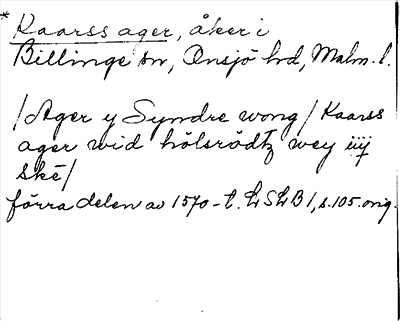 * Kaarss ager, åker i
Billinge sn, Onsjö hd, Malm. l.
/Ager y Syndre wong/ Kaarss
ager wid hölsrödtz wey iiij
ske/
förra delen av 1570-t. LSLB 1, s. 105. orig.